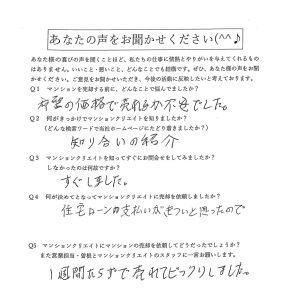 あなたの声をお聞かせください(^^♪
あなた様の喜びの声を聞くことほど、私たちの仕事に情熱とやりがいを与えてくれるもの
はありません。いいこと・悪いこと、どんなことでも結構です。ぜひ、あなた様の声をお聞
かせください。ご意見をお聞かせいただき、今後の活動に反映したいと考えております。
Q1 マンションを売却する前に、どんなことで悩んでましたか?
希望の価格で売れるか不安でした。
Q2 何がきっかけでマンションクリエイトを知りましたか?
(どんな検索ワードで当社ホームページにたどり着きましたか?)
知り合いの紹介
Q3 マンションクリエイトを知ってすぐにお問合せをしてみましたか?
しなかったのは何故ですか?
すぐしました。
Q4 何が決めてとなってマンションクリエイトに売却を依頼しましたか?
住宅ローンの支払いがきついと思ったので
Q5 マンションクリエイトにマンションの売却を依頼してどうだったでしょうか?
また営業担当・曽根とマンションクリエイトのスタッフに一言お願いします。
1週間たらずで売れてビックリしました。